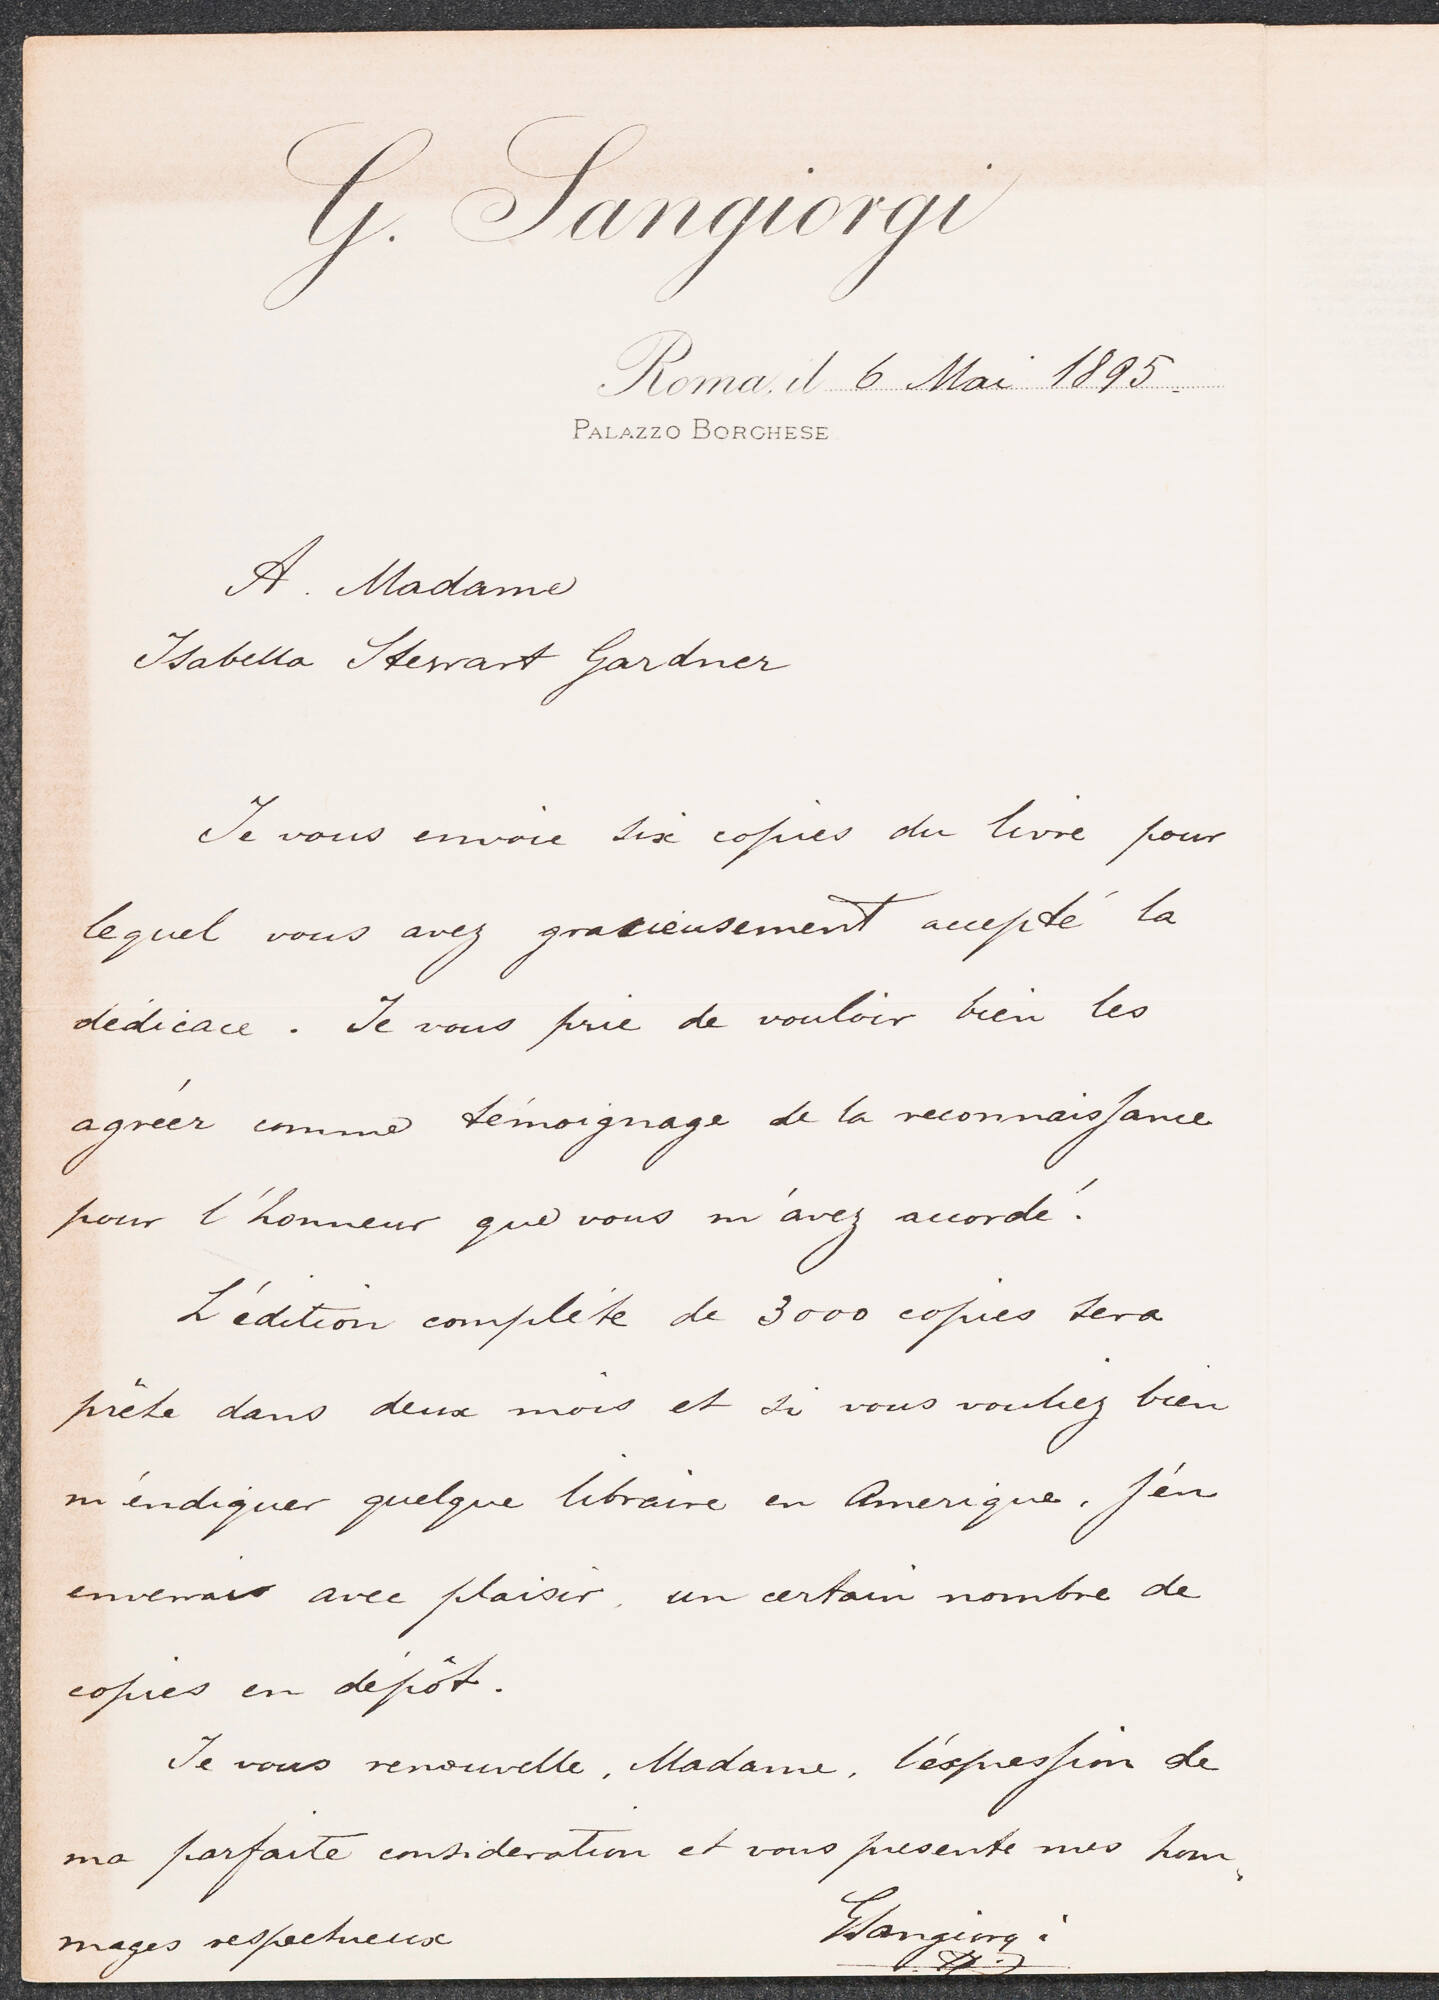 G. Sangiorgi
Roma, il 6 Mai 1895.
PALAZZO BORGHESE
A. Madame
Isabella Stewart Gardner
Je vous envoie six copies du livre pour
lequel vous avez gracieusement accepté la
dédicace. Je vous prie de vouloir bien les
agréer comme témoignage de la reconnaissance
pour l'honneur que vous m'avez accordé.
L'édition complète de 3000 copies sera
prête dans deux mois et si vous vouliez bien
m'endiquer quelque libraire en Amerique, J'en
enverrais avec plaisir, un certain nombre de
copies en dépôt.
Je vous renouvelle, Madame, l'éspression de
ma parfaite consideration et vous presente mes hom-
mages respectueux
GSangiorgi